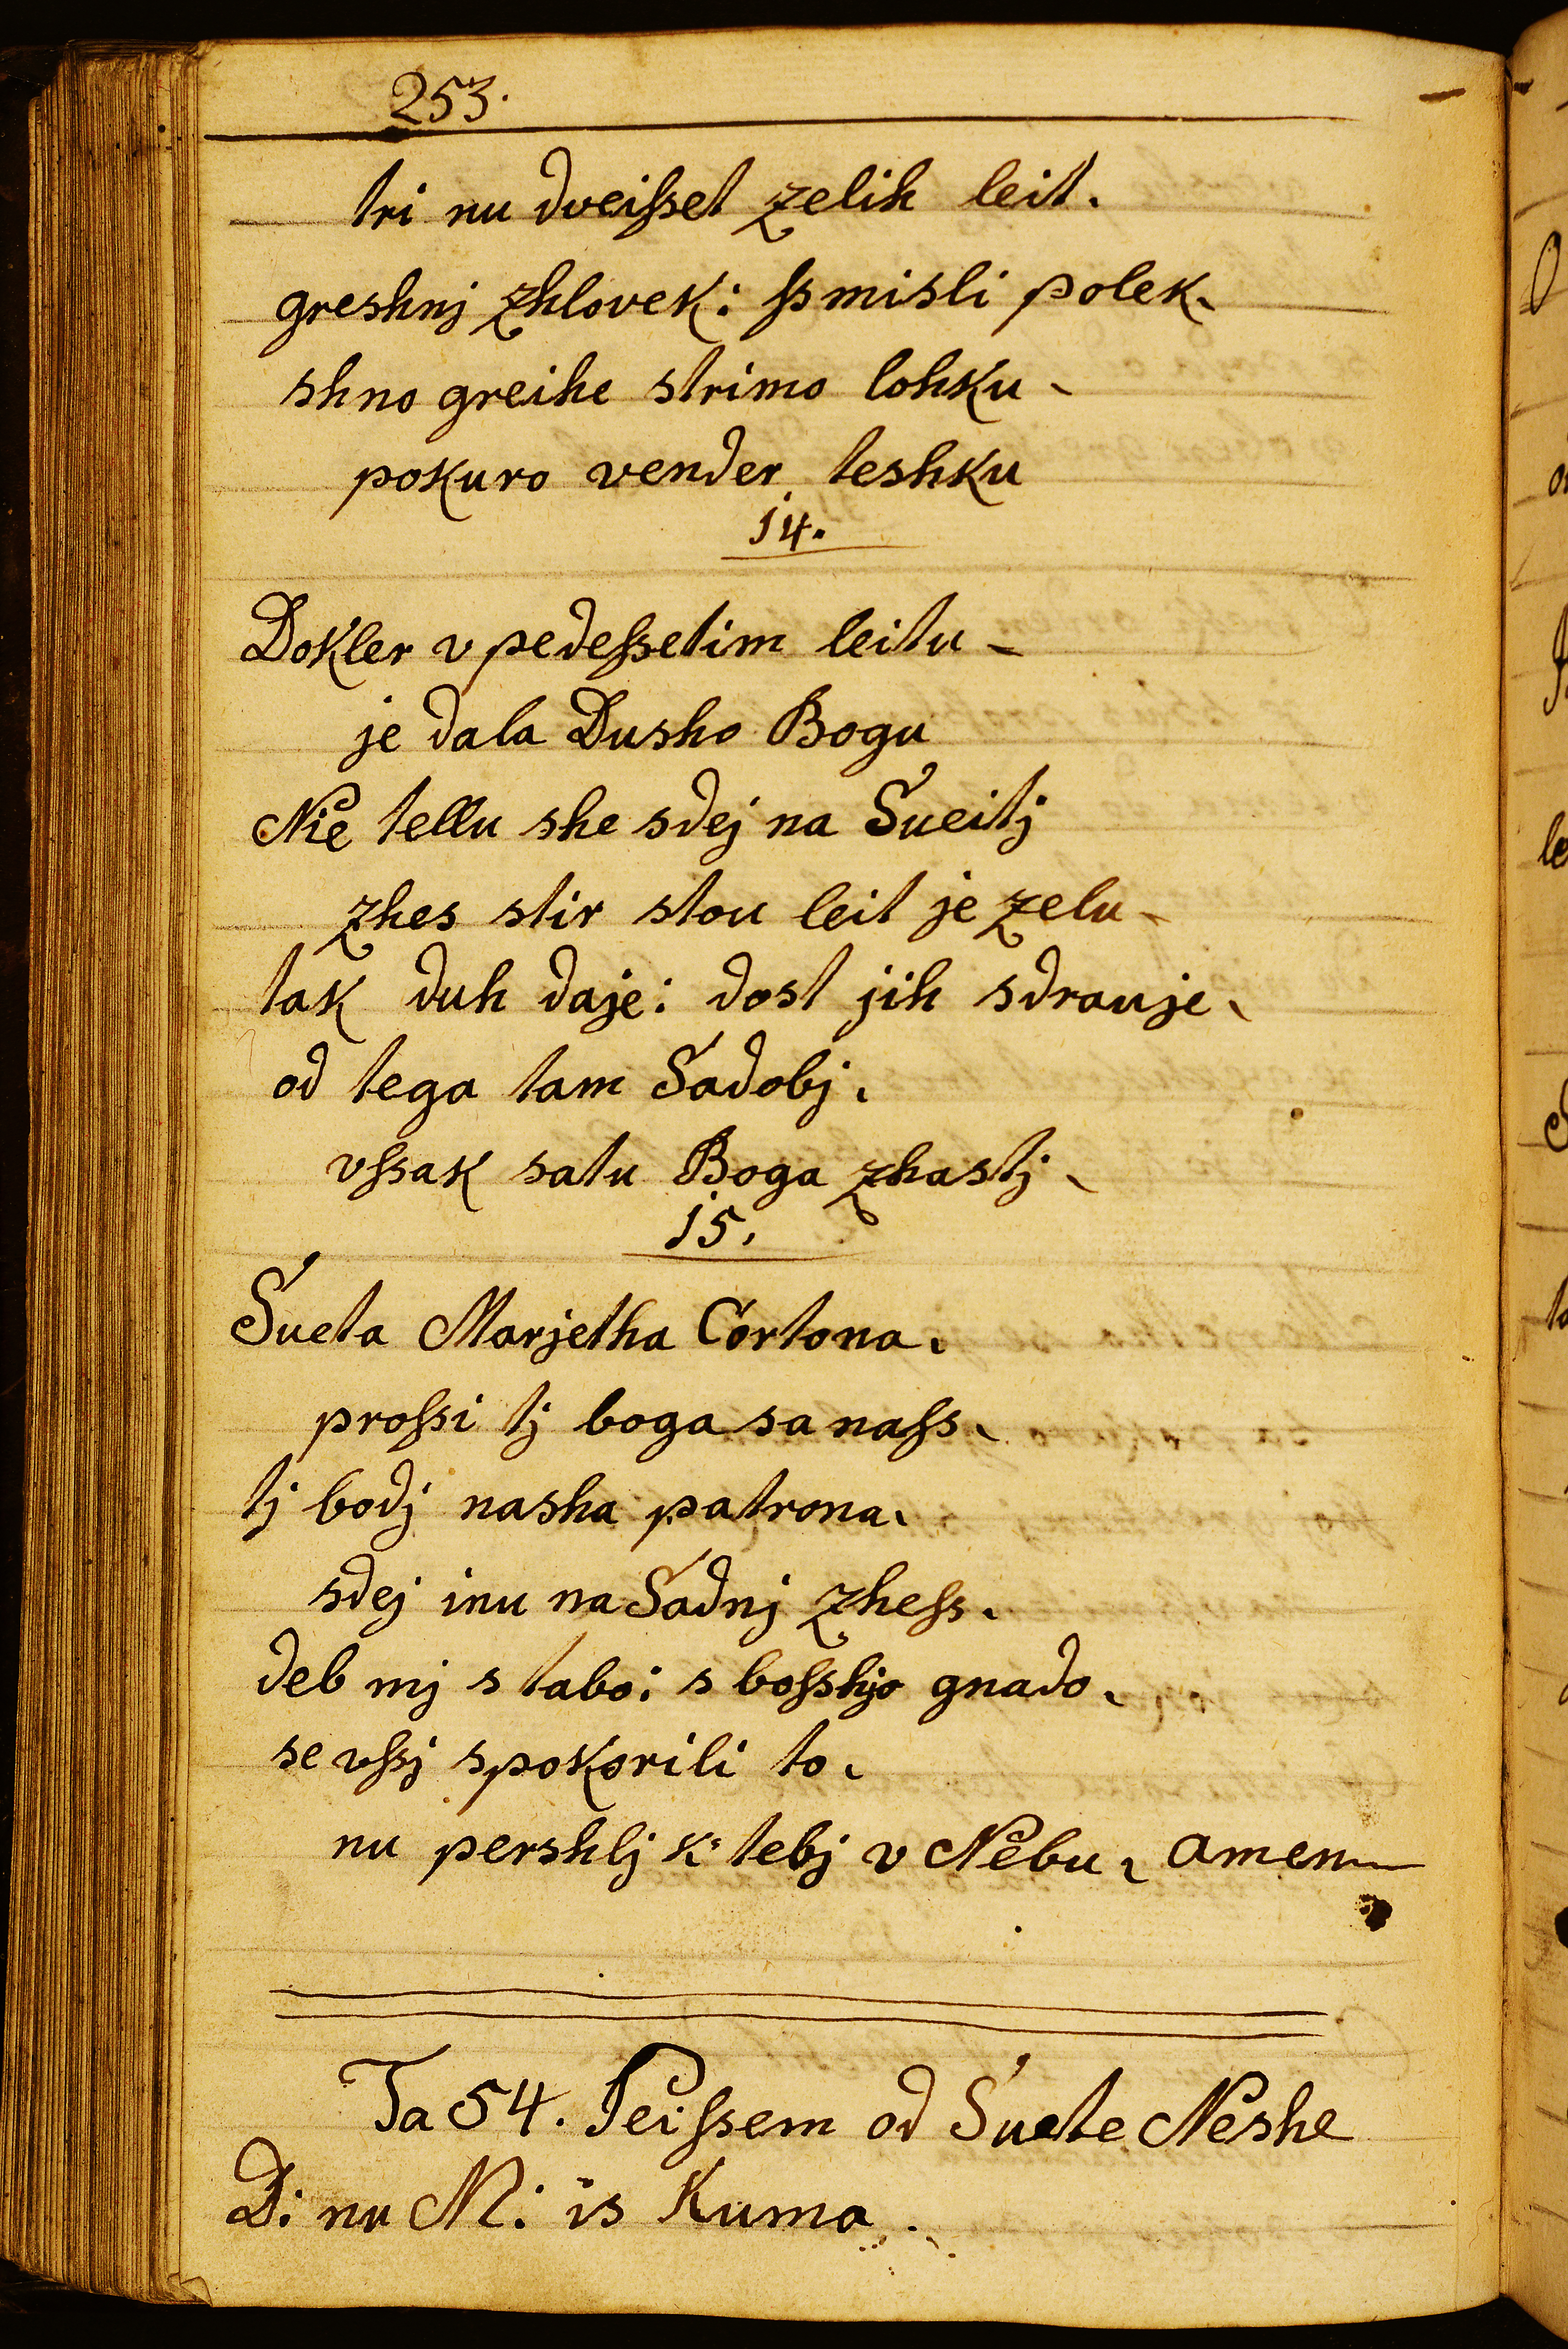 253.
tri nu dveiſset zelih leit.
greshnj zhlovek: ſsmisli polek.
shno greihe strimo lohku -
pokuro vender teshku
14.
Dokler v pedeſsetim leitu -
je dala Dusho Bogu
Nie tellu she sdej na Sueitj
zhes stir stou leit je zelu -
tak duh daje: dost jih sdrauje.
od tega tam Sadobj.
vſsak satu Boga zhastj.
15.
Sueta Marjetha Cortona.
proſsi tj boga sa naſs.
tj bodj nasha patrona.
sdej inu na Sadnj zheſs.
deb mj s tabo: s boſshjo gnado.
se vſsj spokorili to.
nu pershlj k: tebj v Nebu. amen
Ta 54. Peiſsem od Suete Neshe
D: nu M: is Kuma.